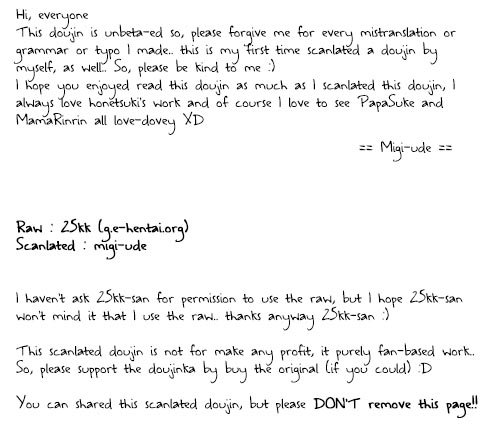 Hi, everyone
This doujin is unbeta-ed so, please forgive me for every mistranslation or
grammar or typo I made.. this is my first time scanlated a doujin by
myself, as well.. So, please be kind to me :)
I hope you enjoyed read this doujin as much as I scanlated this doujin, I
always love honetsuki's work and of course I love to see PapaSuke and
MamaRinrin all love-dovey XD
== Migi-ude ==
Raw : 25kk (g.e-hentai.org)
Scanlated : migi-ude
I haven't ask 25kk-san for permission to use the raw, but I hope 25kk-san
won't mind it that I use the raw.. thanks anyway 25kk-san :)
This scanlated doujin is not for make any profit, it purely fan-based work..
So, please support the doujinka by buy the original (if you could) :D
You can shared this scanlated doujin, but please DON'T remove this page!!